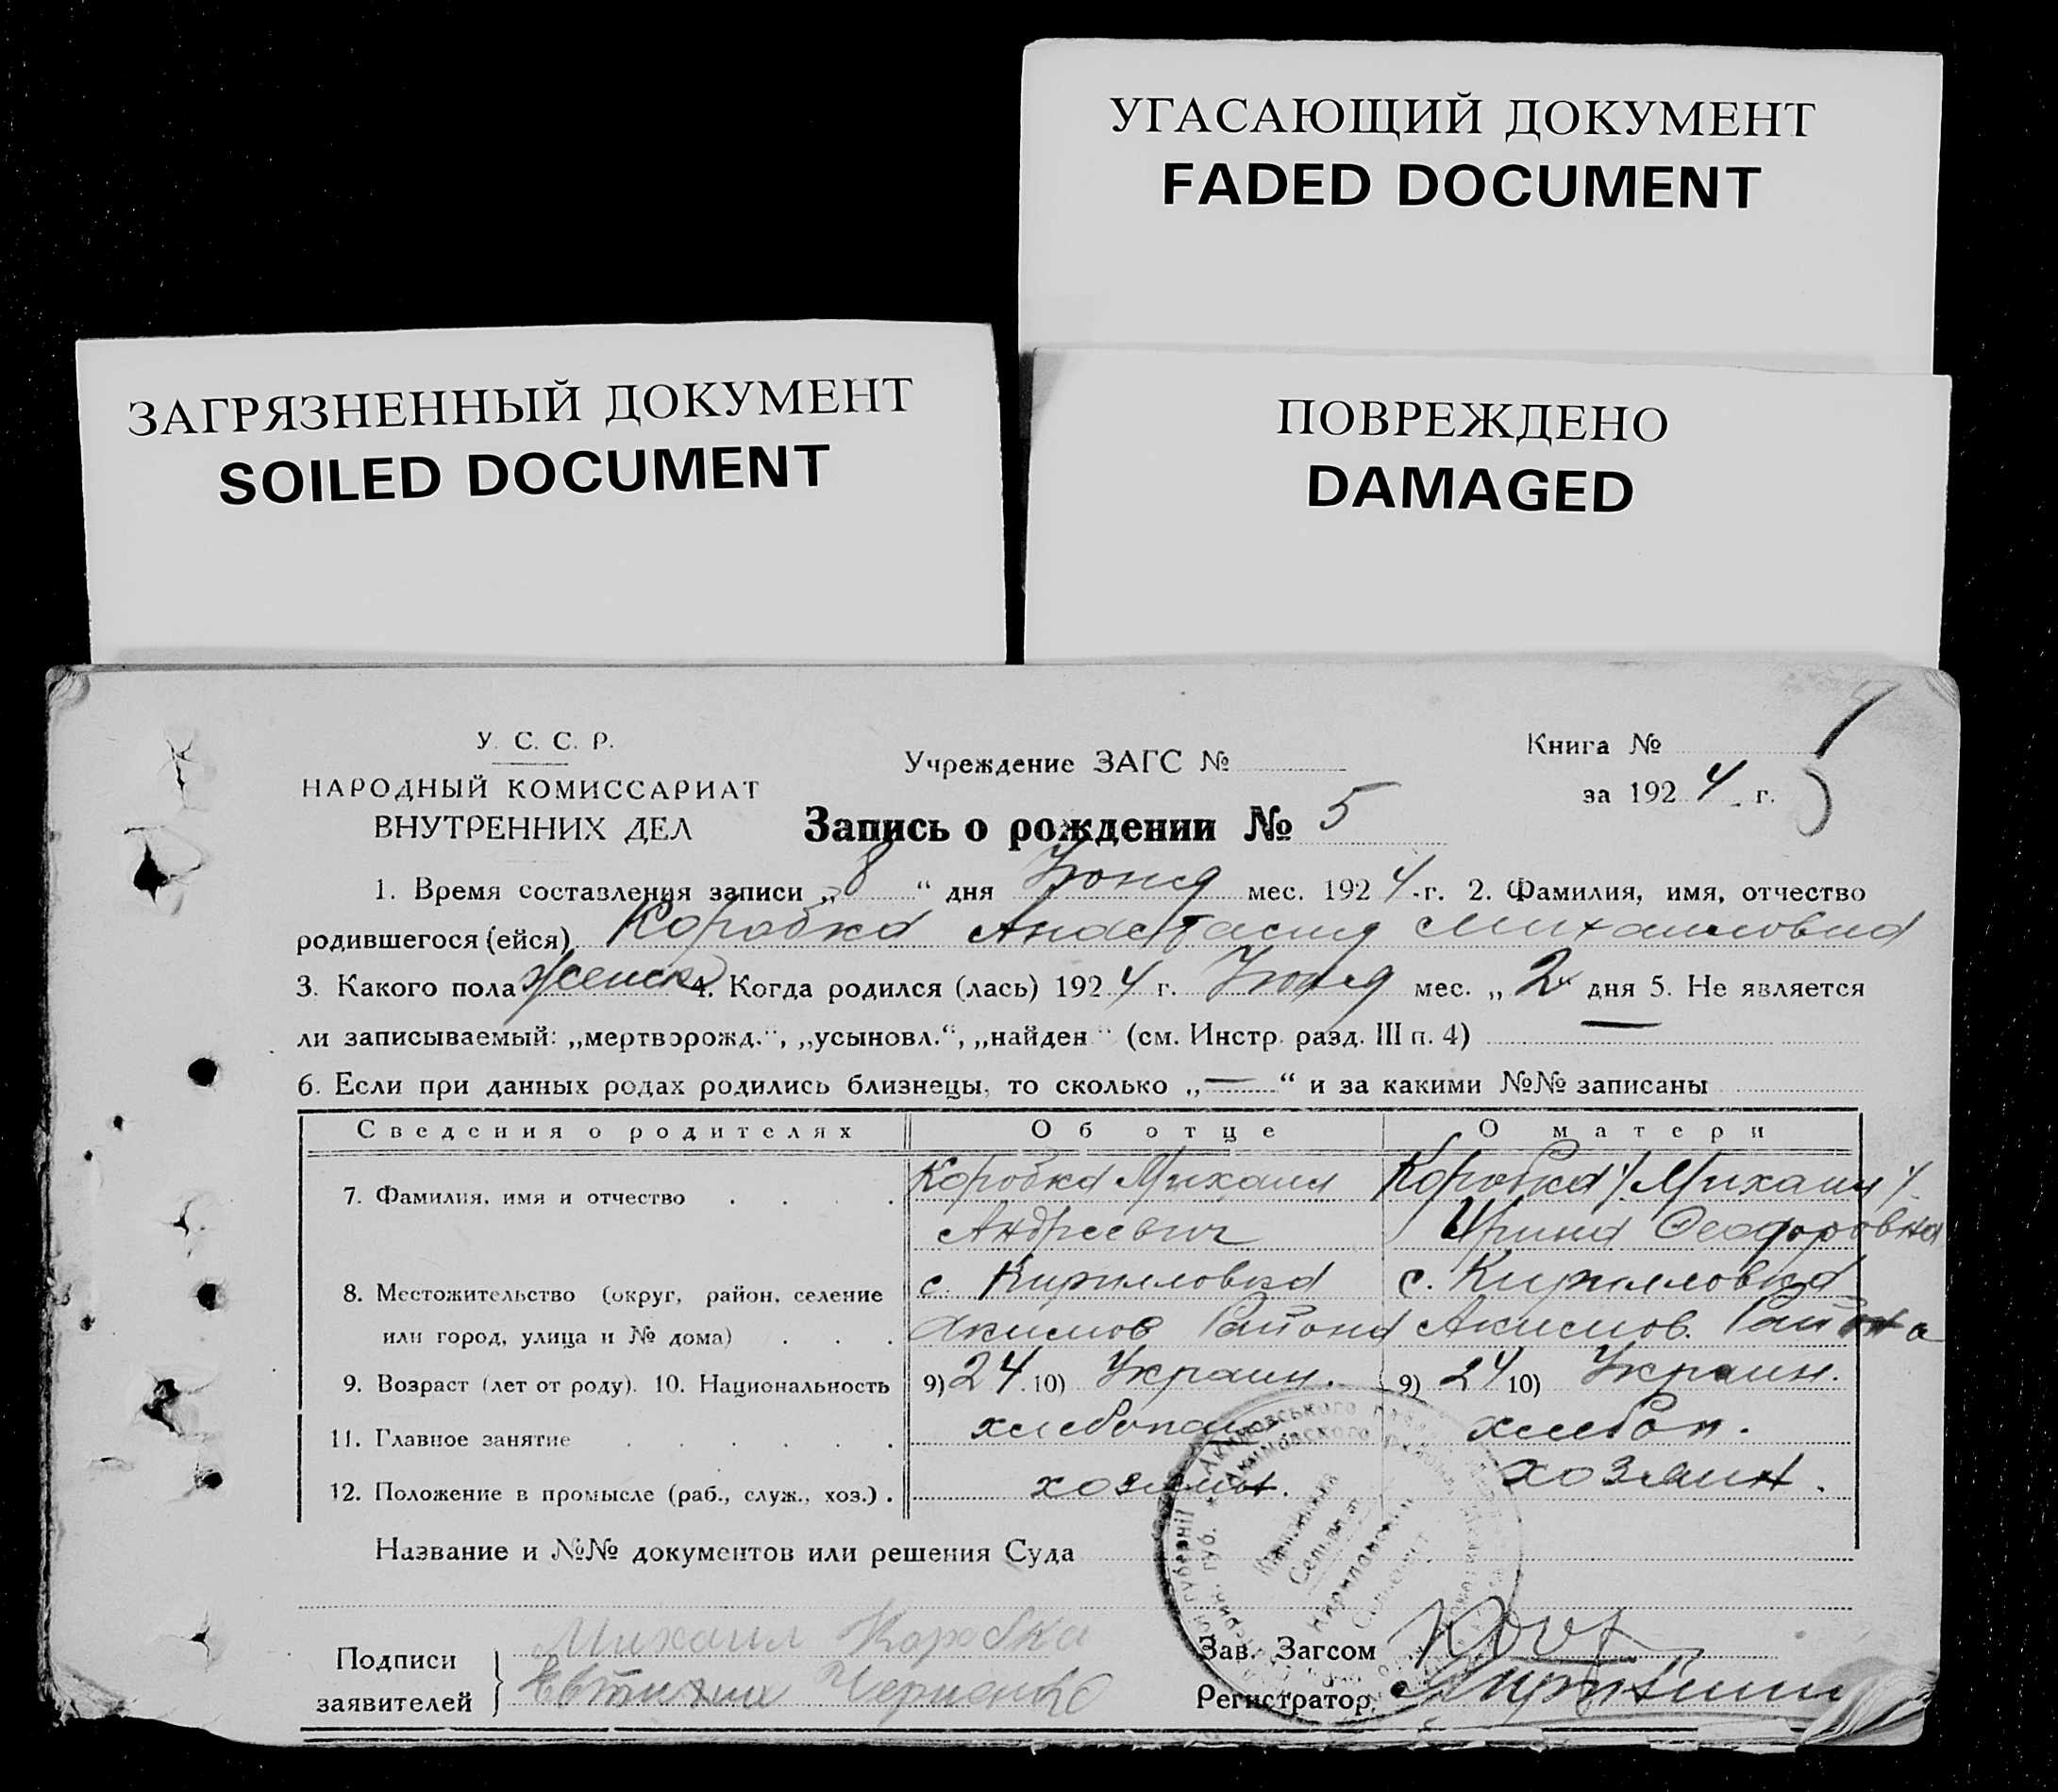 УГАСАЮЩИЙ ДОКУМЕНТ
FADED DOCUMENT
ЗАГРЯЗНЕННЫЙ ДОКУМЕНТ
SOILED DOCUMENT
ПОВРЕЖДЕНО
DAMAGED
У. С. С. Р.
НАРОДНЫЙ КОМИССАРИАТ
ВНУТРЕННИХ ДЕЛ
Учреждение ЗАГС №
Книга №
за 1924 г.
Запись о рождении № 5
1. Время составления записи „8“ дня Июня мес. 1924 г. 2. Фамилия, имя, отчество
родившегося (ейся) Коробка Анастасия Михайловна
3. Какого пола женск 4. Когда родился (лась) 1924 г. Июня мес. „2“ дня 5. Не является
ли записываемый: „мертворожд.“, „усыновл.“, „найден“ (см. Инстр. разд. III п. 4) —
6. Если при данных родах родились близнецы, то сколько „—“ и за какими №№ записаны
Сведения о родителях Об отце О матери
7. Фамилия, имя и отчество Коробка Михаил Коробка Михаил
Андреевич Ирина Феодоровна
8. Местожительство (округ, район, селение с. Кирилловка с. Кирилловка
или город, улица и № дома) Акимов Района Акимов. Района
9. Возраст (лет от роду). 10. Национальность 9) 24 10) Украин. 9) 24 10) Украин.
11. Главное занятие хлебопаш хлебоп.
12. Положение в промысле (раб., служ., хоз.) хозяин. хозяин.
Название и №№ документов или решения Суда
Подписи заявителей
Михаил Коробка
Евтихии Черненко
Зав. Загсом
Регистратор
Акимовського
Акимовского